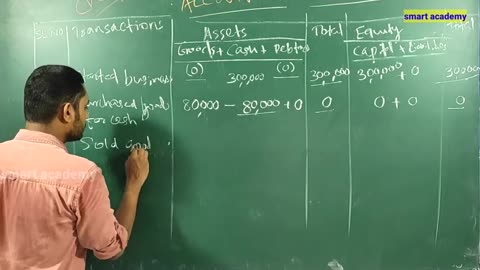 smart academy
ACCOU
SL.NO Transactions Assets Total Equity Total
Goods + Cash + Debtors Capital +
Started business (0) 300,000 (0) 300,000 300,000 + 0 300000
Purchased goods 80,000 - 80,000 + 0 0 0 + 0 0
for cash
Sold goo
smart academy
smart academy